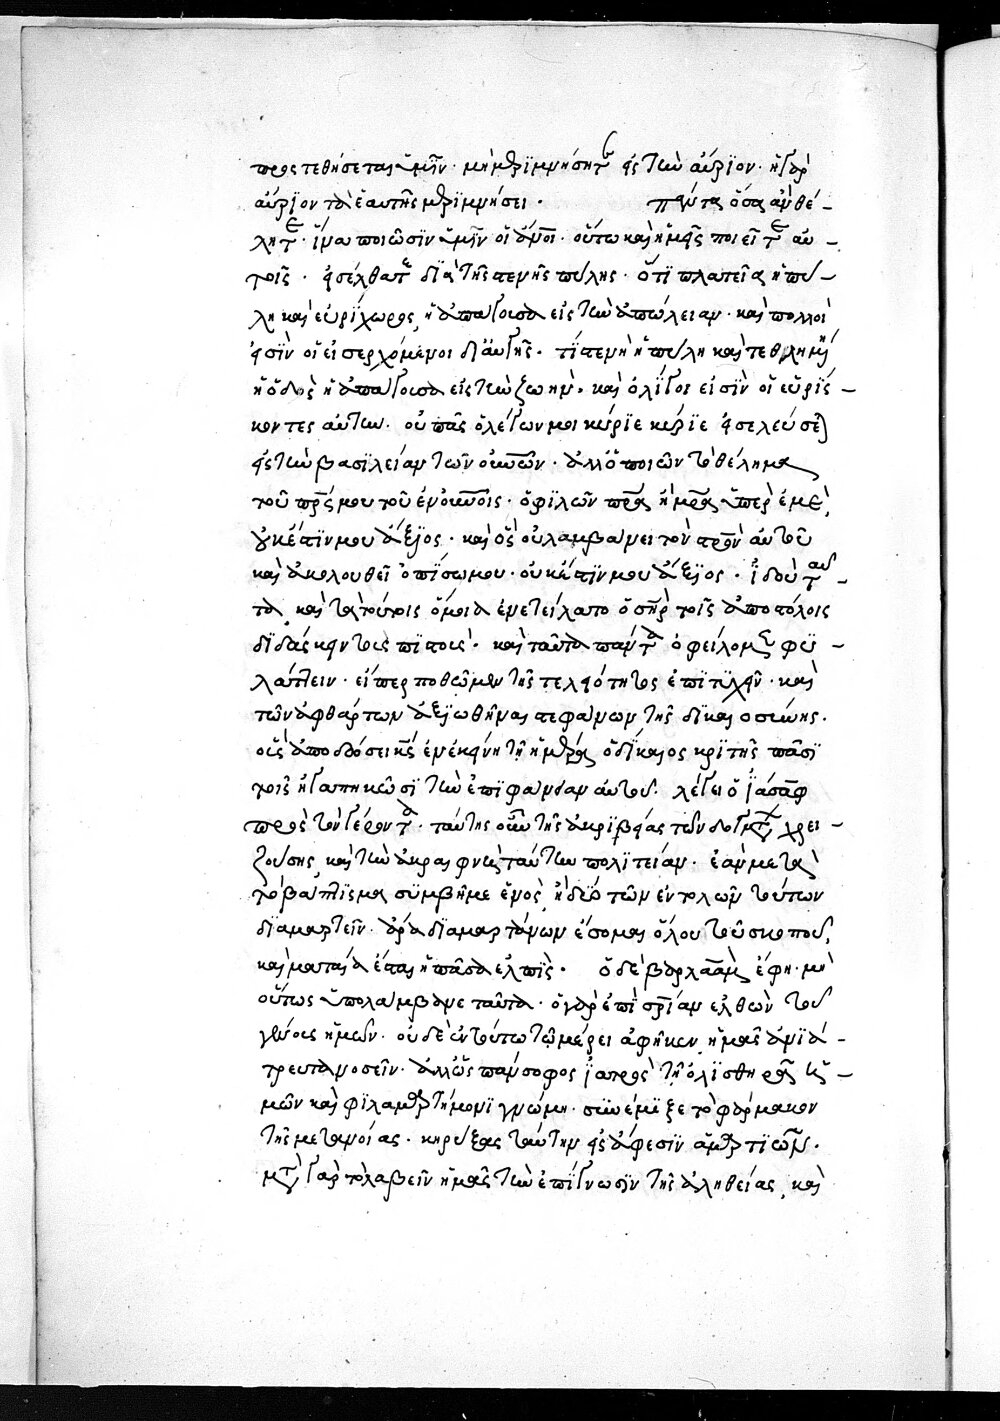 προστεθήσεται ὑμῖν· μὴ μεριμνήσητε εἰς τὴν αὔριον· ἡ γὰρ
αὔριον τὰ ἑαυτῆς μεριμνήσει· πάντα ὅσα ἂν θέ-
λητε ἵνα ποιῶσϊν ὑμῖν οἱ ἄνοι· οὕτω καὶ ἡμεῖς ποιεῖτε αὐ-
τοῖς· εἰσέλθατε δϊὰ τῆς στενῆς πύλης· ὅτϊ πλατεῖα ἡ πύ-
λη καὶ εὐρύχωρος ἡ ἀπάγουσα εἰς τὴν ἀπώλειαν· καὶ πολλοὶ
εἰσῒν οἱ εἰσερχόμενοι δϊ αὐτῆς· τί στενὴ ἡ πύλη καὶ τεθλημμένη
ἡ ὁδὸς ἡ ἀπάγουσα εἰς τὴν ζωήν· καὶ ὀλίγοι εἰσῒν οἱ εὑρίσ-
κοντες αὐτὴν· οὐ πᾶς ὁ λέγων μοι κύρϊε κύρϊε εἰσελεύσεται
εἰς τὴν βασϊλείαν τῶν οὐνῶν· ἀλλ ὁ ποιῶν τὸ θέλημα
τοῦ πρς μου τοῦ ἐν οὐνοῖς· ὁ φϊλῶν πρα ἢ μρα ὑπὲρ ἐμὲ,
οὐκ ἔστϊν μου ἄξϊος· καὶ ὃς οὐ λαμβάνει τὸν στρον αὐτοῦ
καὶ ἀκολουθεῖ ὀπίσω μου· οὐκ ἔστϊν μου ἄξϊος· ἰδοὺ ταῦ-
τα καὶ τὰ τούτοις ὅμοια ἐνετείλατο ὁ σηρ τοῖς ἀποστόλοις
δϊδάσκειν τοὺς πϊστούς· καὶ ταῦτα πάντα ὀφείλομεν φϋ-
λάττειν· εἴπερ ποθοῦμεν τῆς τελειότητος ἐπϊτϋχεῖν· καὶ
τῶν ἀφθάρτων ἀξϊωθῆναι στεφάνων τῆς δϊκαιοσύνης·
οὓς ἀποδώσει κς ἐν ἐκείνη τῆ ἡμέρα ὁ δίκαιος κρϊτὴς πᾶσϊ
τοῖς ἠγαπηκόσϊ τὴν ἐπϊφάνειαν αὐτοῦ. λέγει ὁ ἰωάσαφ
πρὸς τὸν γέροντα· ταύτης οὖν τῆς ἀκρϊβείας τῶν δογμάτων χρει-
ζούσης, καὶ τὴν ἀκραιφνῆ ταύτην πολϊτείαν· ἐὰν μετὰ
τὸ βάπτϊσμα σϋμβῆ με ἑνὸς ἢ δύο τῶν ἐντολῶν τούτων
δϊαμαρτεῖν· ἆρα δϊαμαρτάνων ἔσομαι ὅλου τοῦ σκοποῦ,
καὶ ματαία ἔσται ἡ πᾶσα ἐλπίς· ὁ δὲ βαρλαὰμ ἔφη· μὴ
οὕτως ὑπολάμβανε ταῦτα· ὁ γὰρ ἐπὶ σρίαν ἐλθὼν τοῦ
γένους ἡμῶν· οὐδὲ ἐν τούτω τῶ μέρει ἀφῆκεν ἡμᾶς ἀνϊά-
τρευτα νοσεῖν· ἀλλ ὡς πάνσοφος ἰατρὸς τῆ ὀλϊσθηρᾶ ἡ-
μῶν καὶ φϊλαμαρτήμονϊ γνώμη· συνέμϊξε τὸ φάρμακον
τῆς μετανοίας· κηρύξας ταύτην εἰς ἄφεσϊν ἁμαρτϊῶν·
μετὰ γὰρ τὸ λαβεῖν ἡμᾶς τὴν ἐπίγνωσϊν τῆς ἀληθείας, καὶ